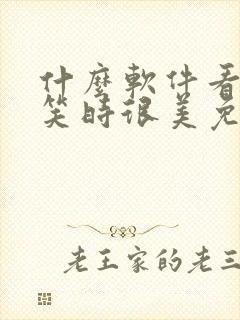 什麼軟件看
笑時很美免
老王家的老三